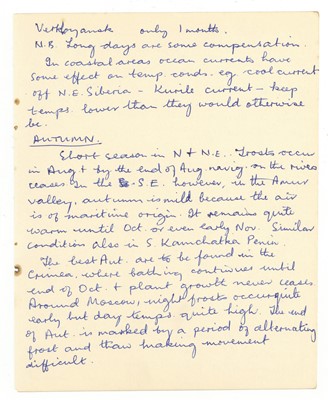 Verkoyansk only 1 month.
N.B. Long days are some compensation.
In coastal areas ocean currents have
some effect on temp. conds. eg. cool current
off N.E. Siberia - Kurile current - keep
temps. lower than they would otherwise
be.
AUTUMN.
Short season in N & N.E. Frosts occur
in Aug. & by the end of Aug. navig. on the rivers
ceases. In the S.E. however, in the Amur
valley, autumn is mild because the air
is of maretime origin. It remains quite
warm until Oct. or even early Nov. Similar
condition also in S. Kamchatka Penin.
The best Aut. are to be found in the
Crimea, where bathing continues until
end of Oct. & plant growth never ceases.
Around Moscow, night frosts occur quite
early but day temps. quite high. The end
of Aut. is marked by a period of alternating
frost and thaw making movement
difficult.